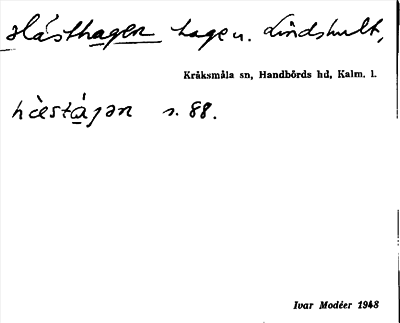 Hästhagen hage u. Lindshult,
Kråksmåla sn, Handbörds hd, Kalm. l.
hæ̀stá̱jən s. 88.
Ivar Modéer 1948